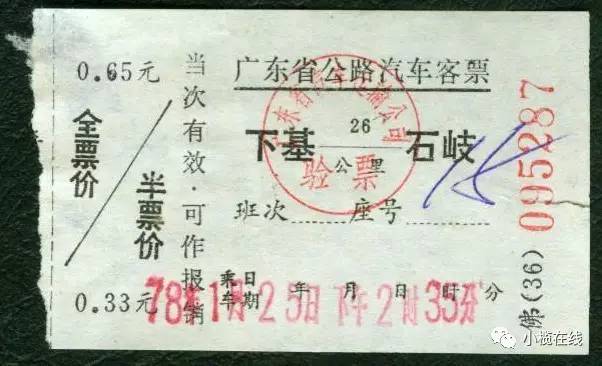 0.65元
全票价
半票价
0.33元
当次有效·可作报销
广东省公路汽车客票
下基 26 公里 石岐
验票
班次 座号
15
乘车日期 年 月 日 时 分
78年1月25日下午2时35分
095287
佛(36)
小榄在线